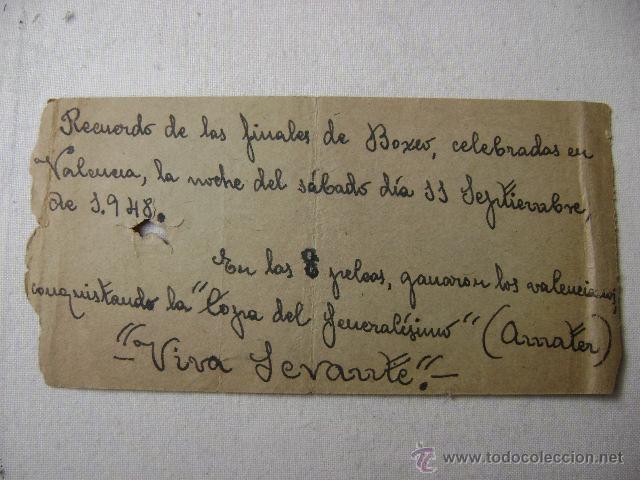 Recuerdo de las finales de Boxeo, celebradas en
Valencia, la noche del sábado día 11 Septiembre,
de 1.948.
En las 8 peleas, ganaron los valencianos,
conquistando la "Copa del Generalísimo" (Amater)
-"Viva Levante".-
todocoleccion
www.todocoleccion.net